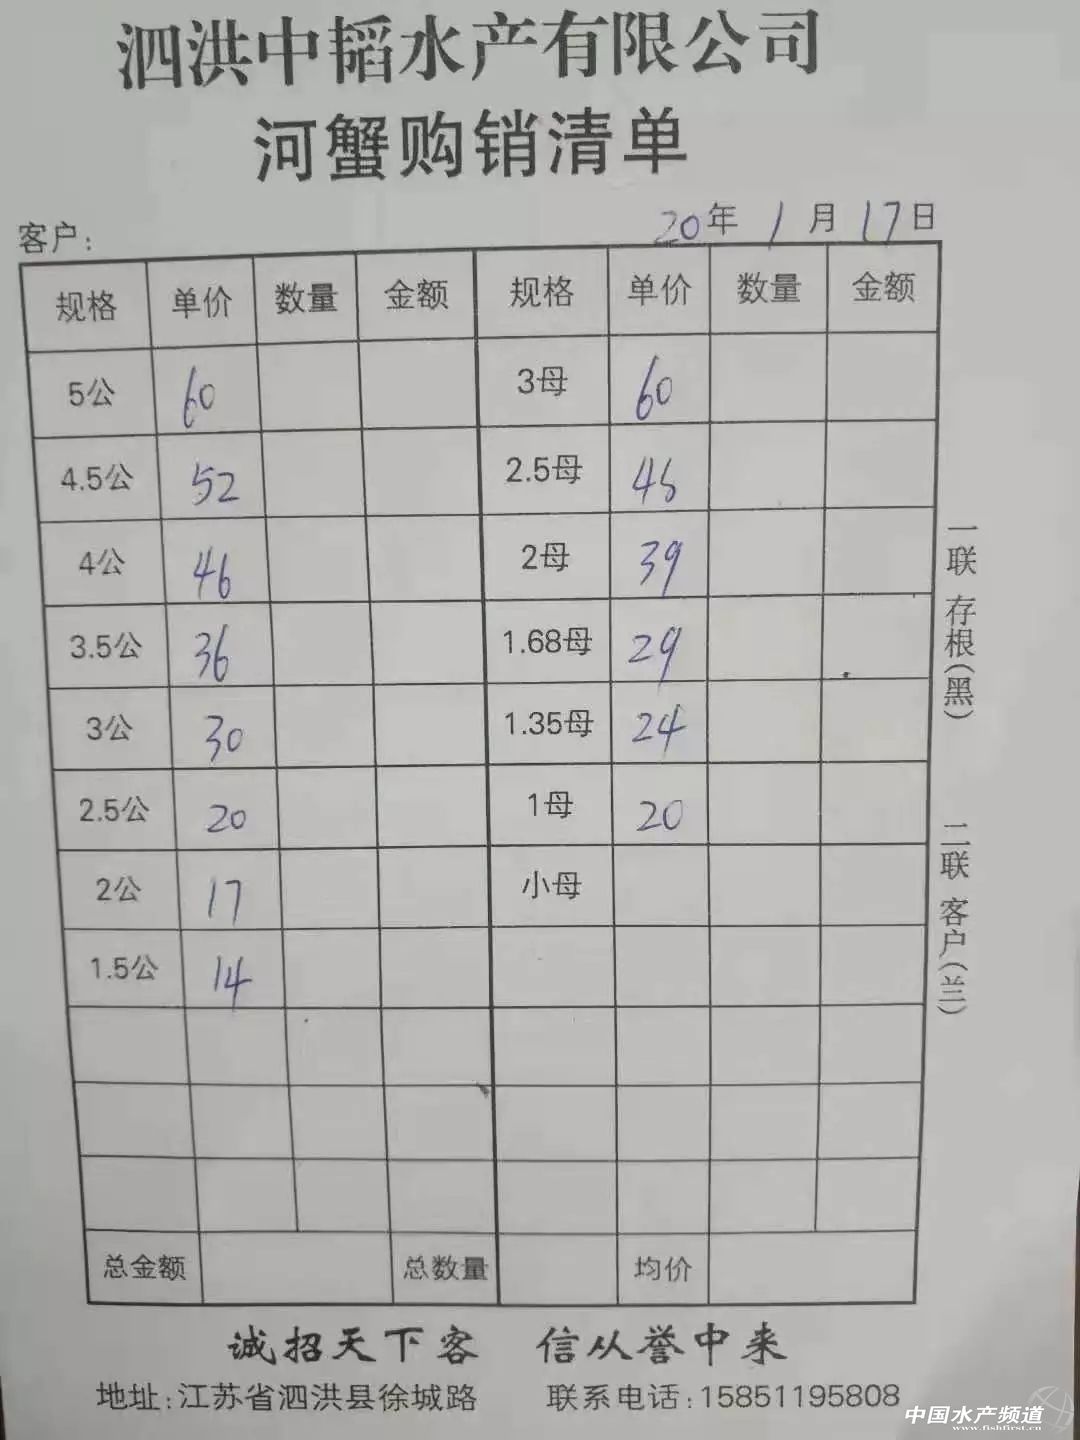 泗洪中韬水产有限公司
河蟹购销清单
客户: 20年 1月 17日
规格 单价 数量 金额 规格 单价 数量 金额
5公 60 3母 60
4.5公 52 2.5母
4公 46 2母 39
3.5公 36 1.68母 29
3公 30 1.35母 24
2.5公 20 1母 20
2公 17 小母
1.5公 14
总金额 总数量 均价
诚招天下客 信从誉中来
地址:江苏省泗洪县徐城路 联系电话:15851195808
一联 存根(黑)
二联 客户(兰)
中国水产频道
www.fishfirst.cn